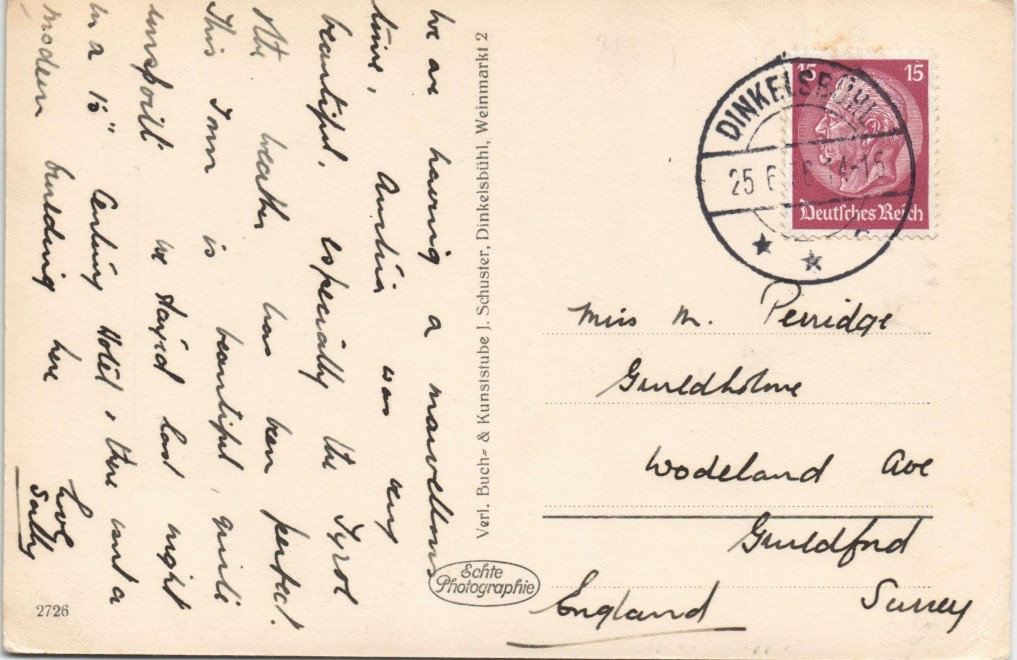 We are having a marvellous
time, Austria was very
beautiful, especially the Tyrol
The weather has been perfect.
This Town is beautiful quite
unspoilt we stayed last night
in a 15" Century Hotel, there isnt a
modern building here
Love
Sally
2726
Verl. Buch- & Kunststube J. Schuster, Dinkelsbühl, Weinmarkt 2
Echte
Photographie
15 15
Deutsches Reich
DINKELSBÜHL
25 6 36 14-15
Miss M. Perridge
Guildholme
Wodeland Ave
Guildford
Surrey
England